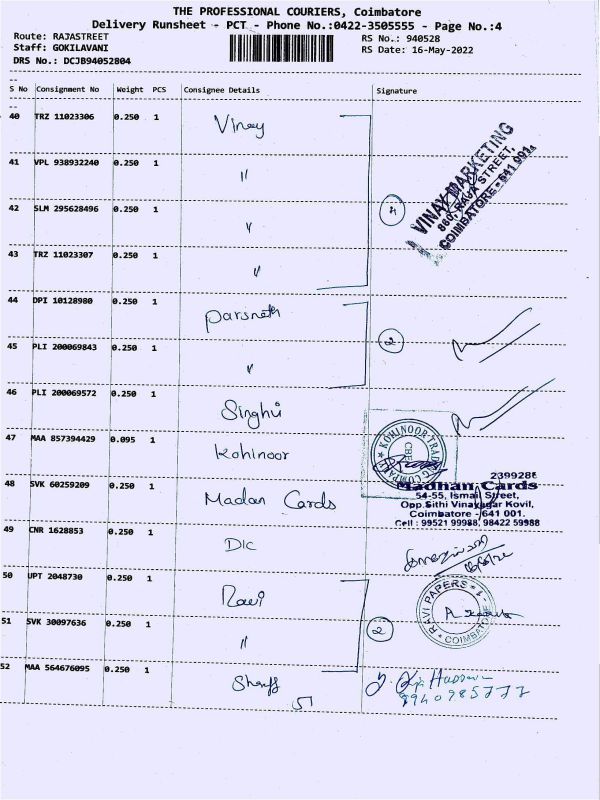 THE PROFESSIONAL COURIERS, Coimbatore
Delivery Runsheet - PCT - Phone No.:0422-3505555 - Page No.:4
Route: RAJASTREET
RS No.: 940528
Staff: GOKILAVANI
RS Date: 16-May-2022
DRS No.: DCJB94052804
S No Consignment No Weight PCS Consignee Details Signature
40 TRZ 11023306 0.250 1 Vinay
41 VPL 938932240 0.250 1 "
42 SLM 295628496 0.250 1 "
43 TRZ 11023307 0.250 1 "
4
VINAY MARKETING
860, RAJA STREET,
COIMBATORE - 641 001.
44 DPI 10128980 0.250 1 Parsnath
45 PLI 200069843 0.250 1 "
2
46 PLI 200069572 0.250 1 Singhvi
47 MAA 857394429 0.095 1 Kohinoor
KOHINOOR TRADING COMPANY
CBE
48 SVK 60259209 0.250 1 Madan Cards
2399286
Madhan Cards
54-55, Ismail Street,
Opp.Sithi Vinayagar Kovil,
Coimbatore - 641 001.
Cell : 99521 99988, 98422 59988
49 CNR 1628853 0.250 1 DIC
50 UPT 2048730 0.250 1 Ravi
51 SVK 30097636 0.250 1 "
2
RAVI PAPERS
COIMBATORE
52 MAA 564676095 0.250 1 Sheriff
9940985777